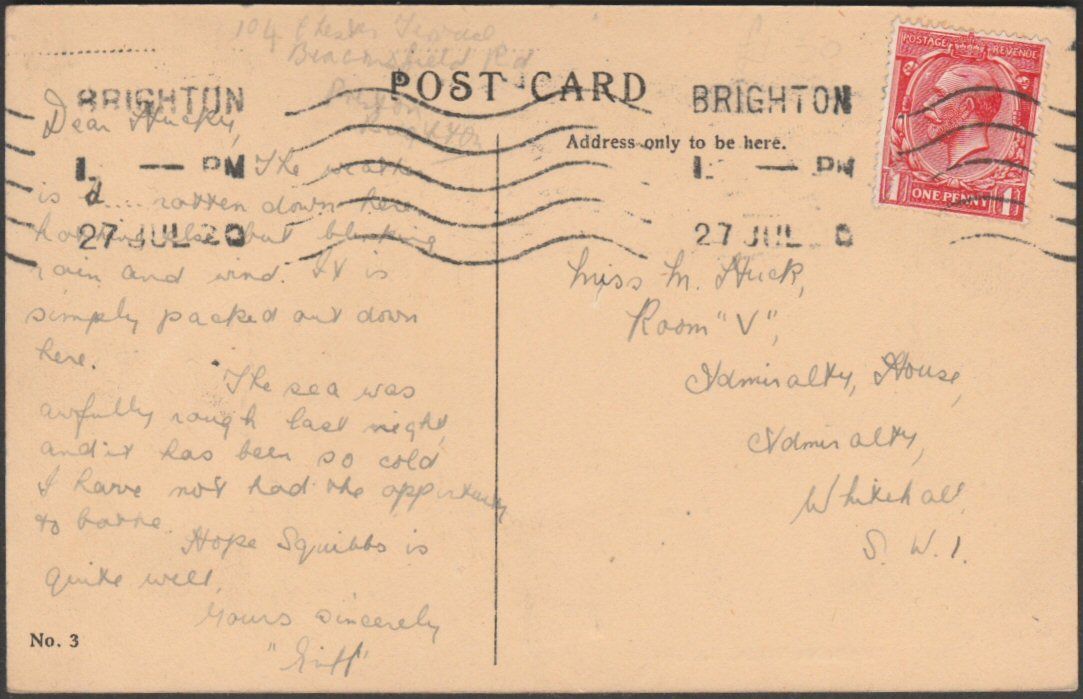 104 Chester Terrace
Beaconsfield Rd
Brighton
POST CARD
BRIGHTON
1 — PM
27 JUL 20
BRIGHTON
1 — PM
27 JUL 0
POSTAGE REVENUE
1 ONE PENNY 1
Address only to be here.
Dear Hucky,
The weather
is d.... rotten down here
nothing else but blinking
rain and wind. It is
simply packed out down
here.
The sea was
awfully rough last night,
and it has been so cold
I have not had the opportunity
to bathe.
Hope Squibbs is
quite well,
Yours sincerely
No. 3
Miss M. Huck,
Room "V",
Admiralty House,
Admiralty,
Whitehall,
S. W. 1.